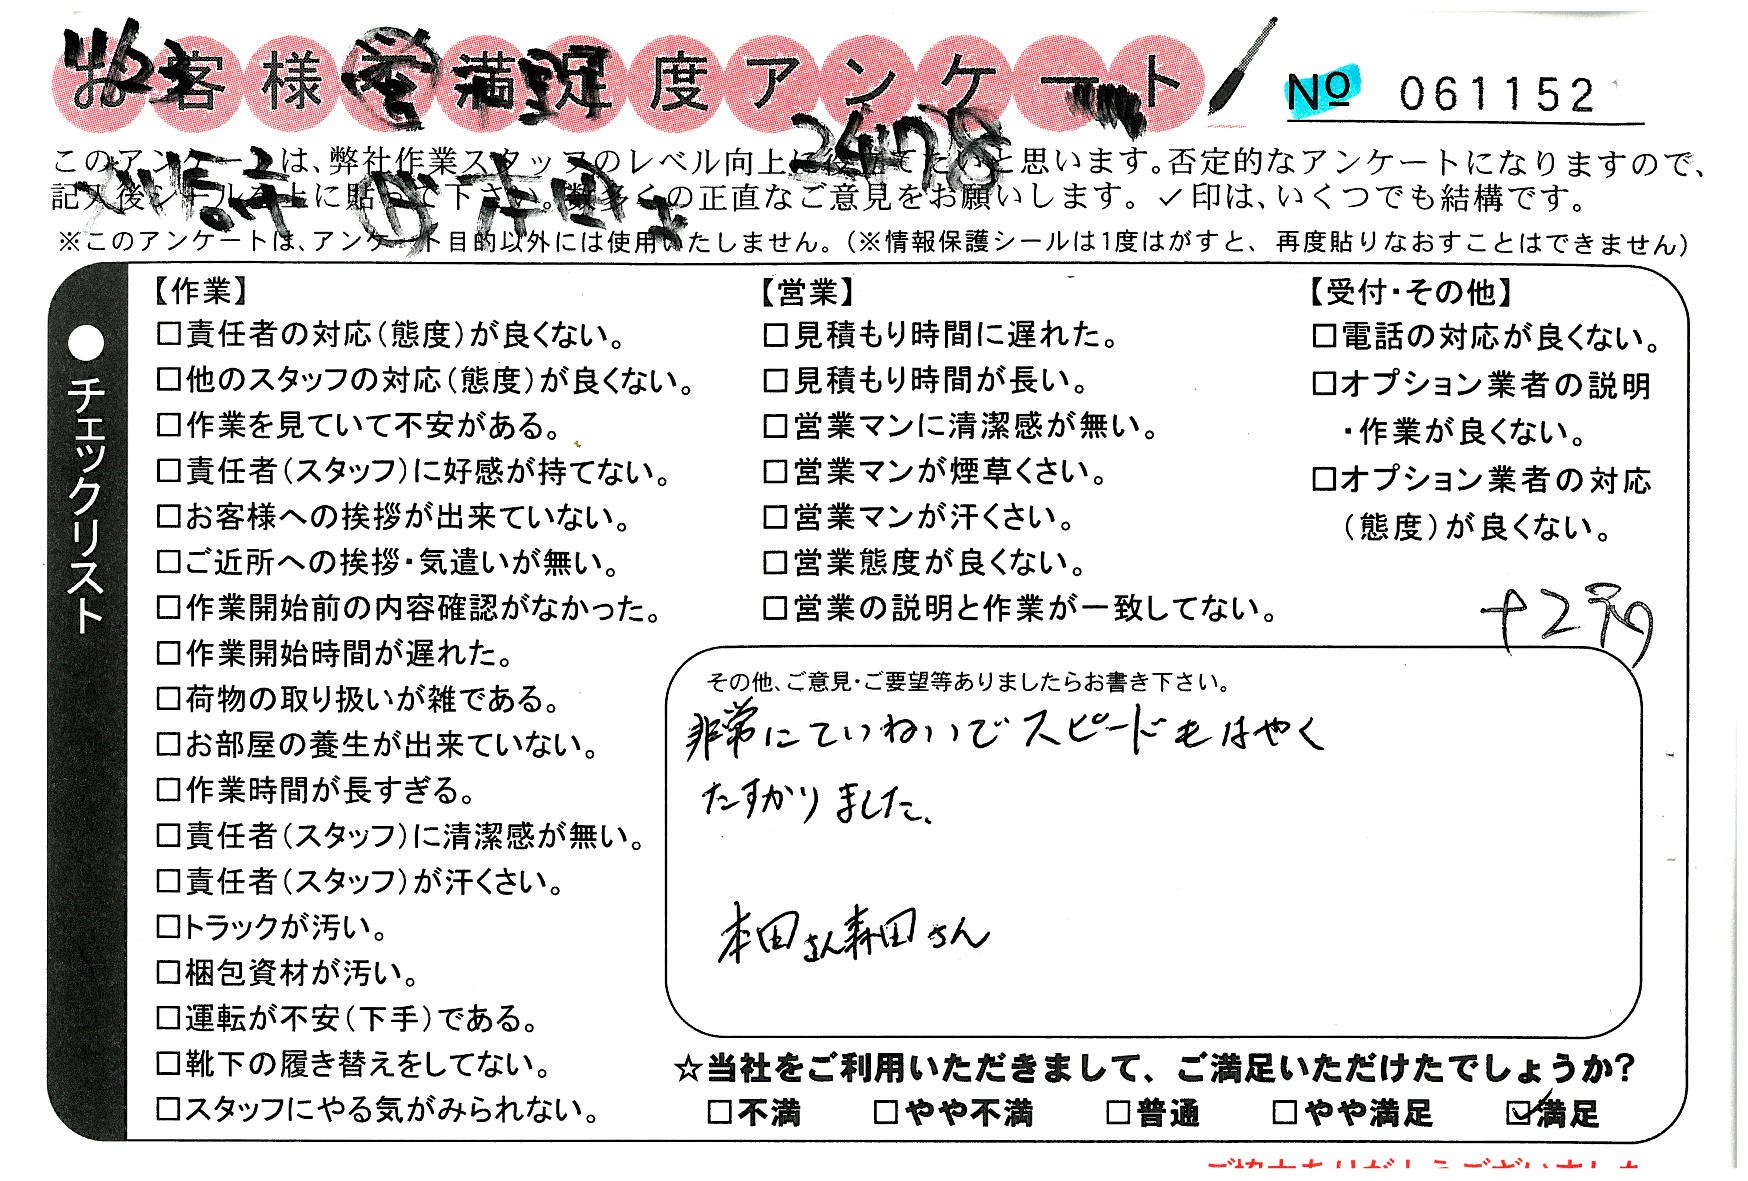 お客様満足度アンケート
№ 061152
このアンケートは、弊社作業スタッフのレベル向上に役立てたいと思います。否定的なアンケートになりますので、
記入後シールを上に貼って下さい。数多くの正直なご意見をお願いします。✓印は、いくつでも結構です。
※このアンケートは、アンケート目的以外には使用いたしません。(※情報保護シールは1度はがすと、再度貼りなおすことはできません)
●チェックリスト
【作業】
□責任者の対応(態度)が良くない。
□他のスタッフの対応(態度)が良くない。
□作業を見ていて不安がある。
□責任者(スタッフ)に好感が持てない。
□お客様への挨拶が出来ていない。
□ご近所への挨拶・気遣いが無い。
□作業開始前の内容確認がなかった。
□作業開始時間が遅れた。
□荷物の取り扱いが雑である。
□お部屋の養生が出来ていない。
□作業時間が長すぎる。
□責任者(スタッフ)に清潔感が無い。
□責任者(スタッフ)が汗くさい。
□トラックが汚い。
□梱包資材が汚い。
□運転が不安(下手)である。
□靴下の履き替えをしてない。
□スタッフにやる気がみられない。
【営業】
□見積もり時間に遅れた。
□見積もり時間が長い。
□営業マンに清潔感が無い。
□営業マンが煙草くさい。
□営業マンが汗くさい。
□営業態度が良くない。
□営業の説明と作業が一致してない。
【受付・その他】
□電話の対応が良くない。
□オプション業者の説明
・作業が良くない。
□オプション業者の対応
(態度)が良くない。
その他、ご意見・ご要望等ありましたらお書き下さい。
非常にていねいでスピードもはやく
たすかりました、
本田さん森田さん
☆当社をご利用いただきまして、ご満足いただけたでしょうか?
□不満 □やや不満 □普通 □やや満足 ☑満足
ご協力ありがとうございました